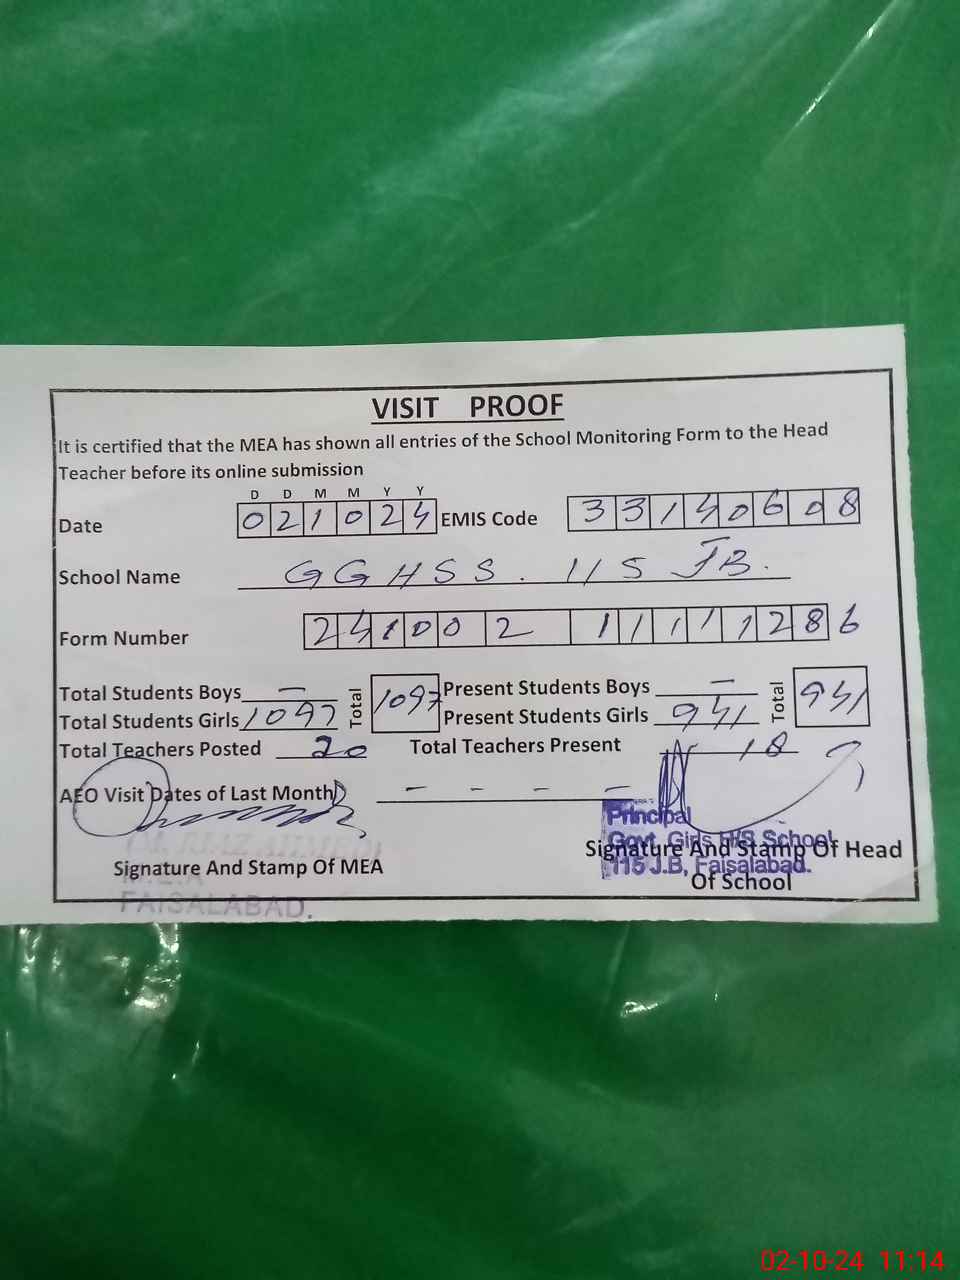 VISIT PROOF
It is certified that the MEA has shown all entries of the School Monitoring Form to the Head
Teacher before its online submission
D D M M Y Y
Date 0 2 1 0 2 4 EMIS Code 3 3 1 4 0 6 0 8
School Name GGHSS. 115 JB.
Form Number 2 4 1 0 0 2 1 1 1 1 1 2 8 6
Total Students Boys — Total 1097 Present Students Boys — Total 941
Total Students Girls 1097 Present Students Girls 941
Total Teachers Posted 20 Total Teachers Present 18
AEO Visit Dates of Last Month - - - -
Principal
Govt. Girls H/S School
115 J.B, Faisalabad.
Signature And Stamp Of MEA Signature And Stamp Of Head
Of School
M.E.A
FAISALABAD.
02-10-24 11:14